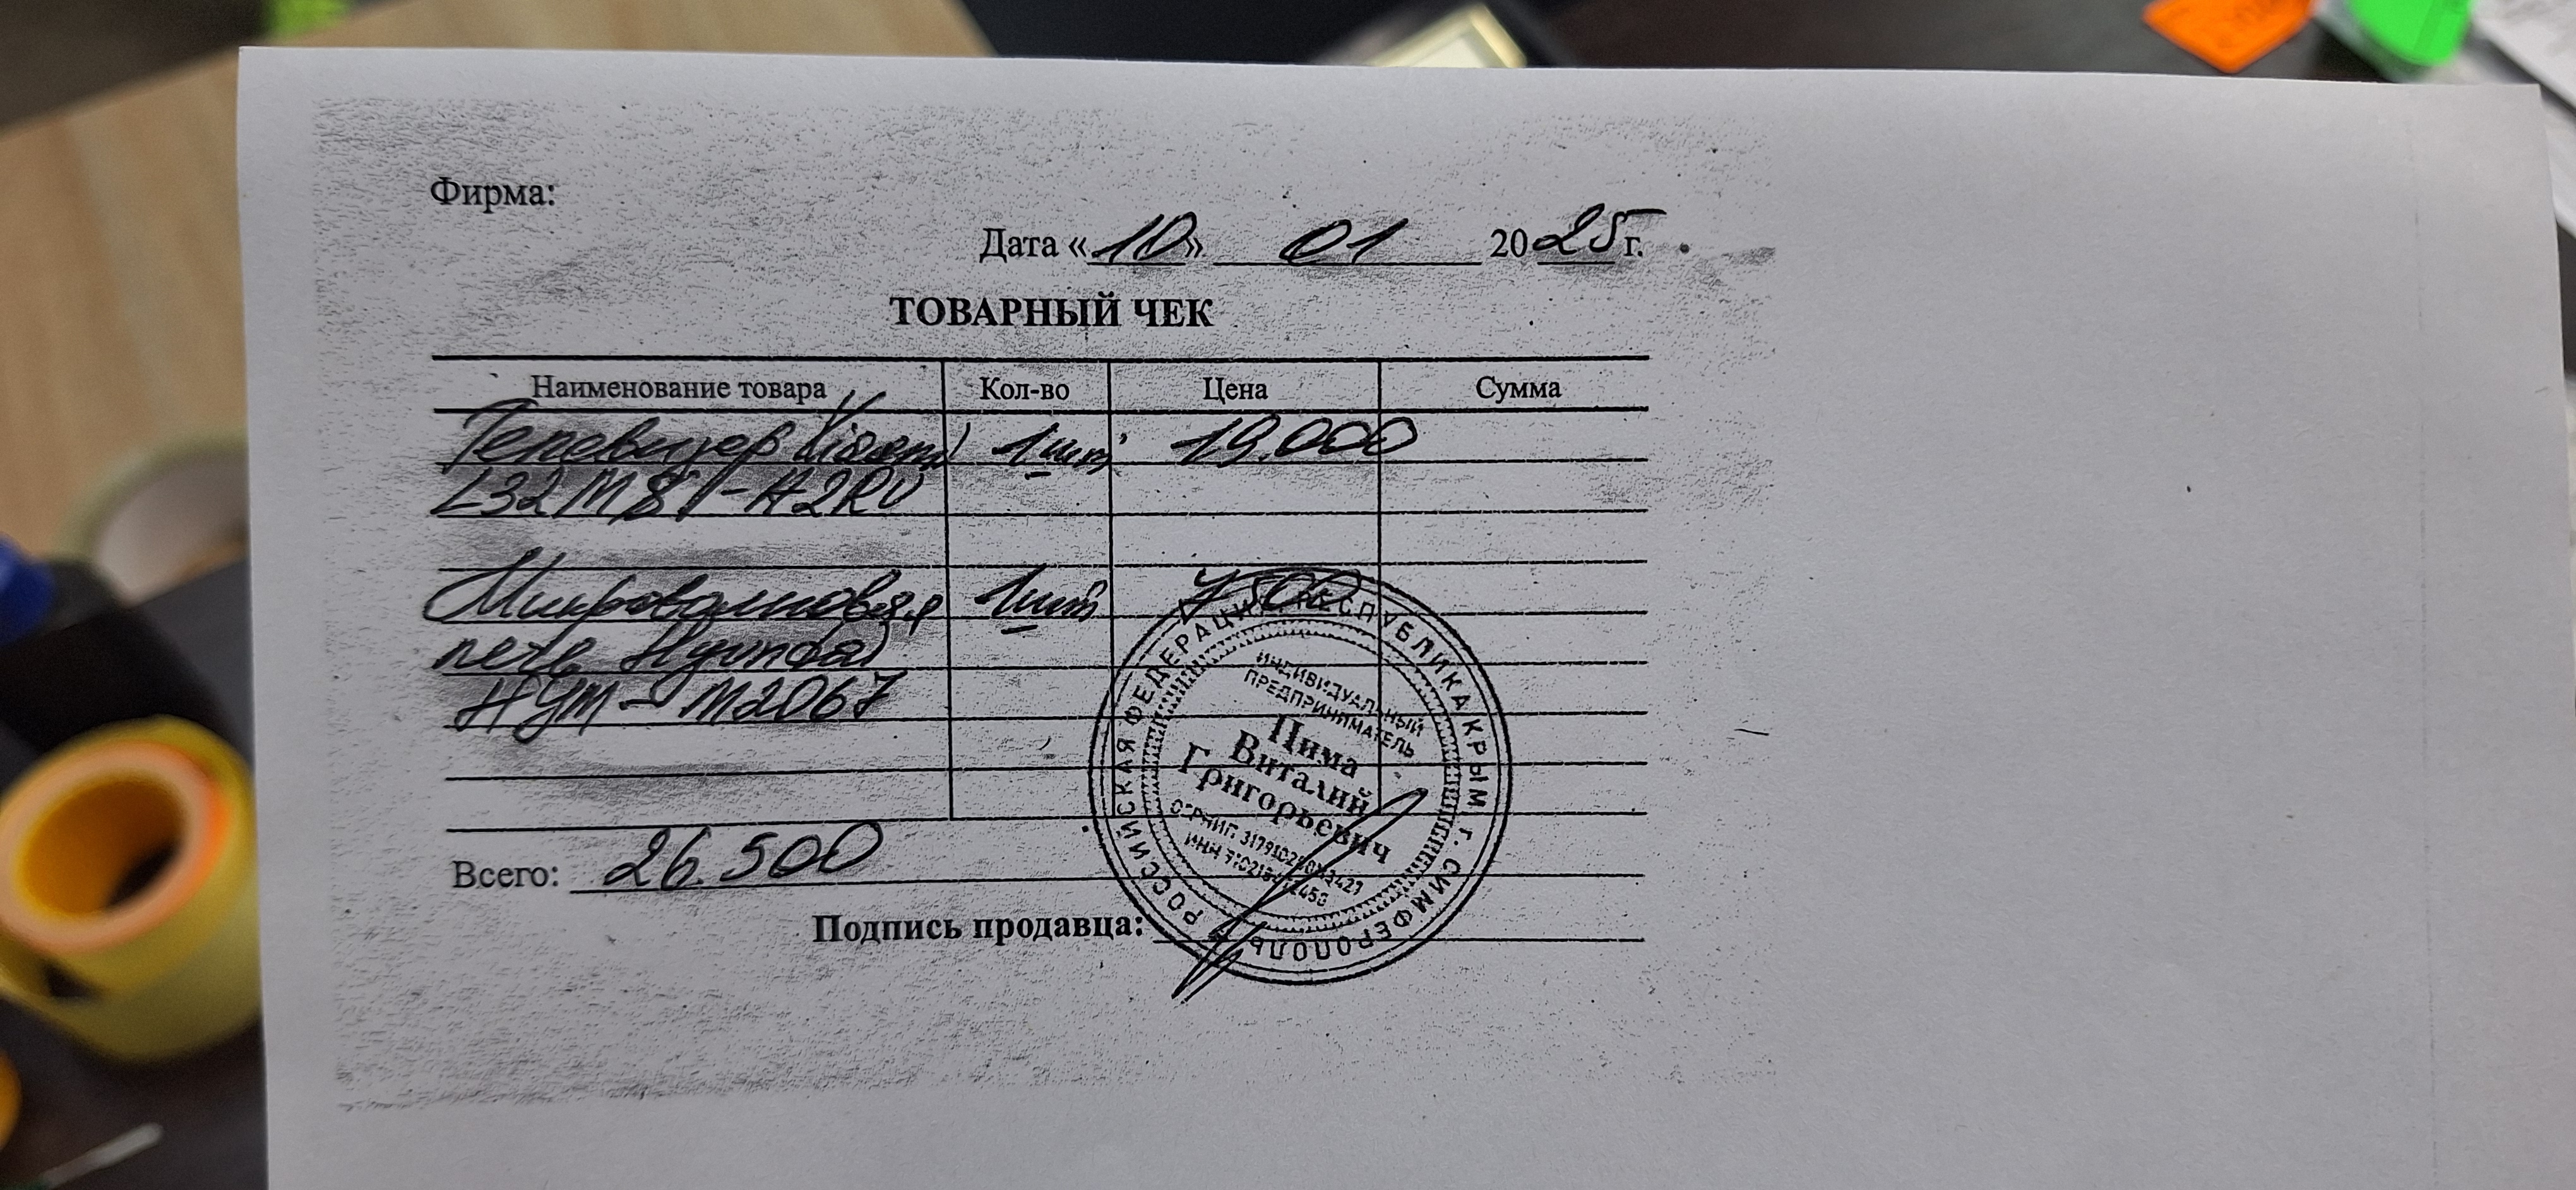 Фирма:
Дата «10» 01 2025 г.
ТОВАРНЫЙ ЧЕК
Наименование товара Кол-во Цена Сумма
Телевизор Xiaomi 1шт 19.000
L32M8 -A2RU
Микроволновая 1шт 7500
печь Hyundai
HYM-M2067
Всего: 26.500
Подпись продавца:
РОССИЙСКАЯ ФЕДЕРАЦИЯ РЕСПУБЛИКА КРЫМ г. СИМФЕРОПОЛЬ
ИНДИВИДУАЛЬНЫЙ
ПРЕДПРИНИМАТЕЛЬ
Пима
Виталий
Григорьевич
ОГРНИП
ИНН